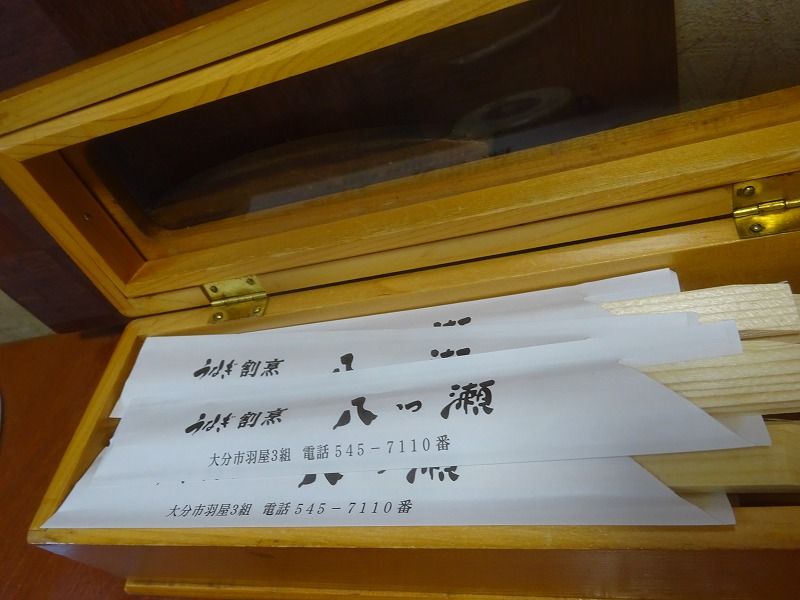 瀬
うなぎ割烹 八 瀬
うなぎ割烹 八つ瀬
大分市羽屋3組 電話545-7110番
八つ瀬
大分市羽屋3組 電話545-7110番